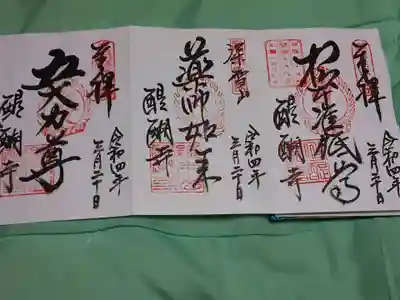 奉拝
令和四年
三月二十日
准胝
醍醐寺
深雪山
令和四年
三月二十日
薬師如来
醍醐寺
奉拝
令和四年
三月二十日
五大力尊
醍醐寺